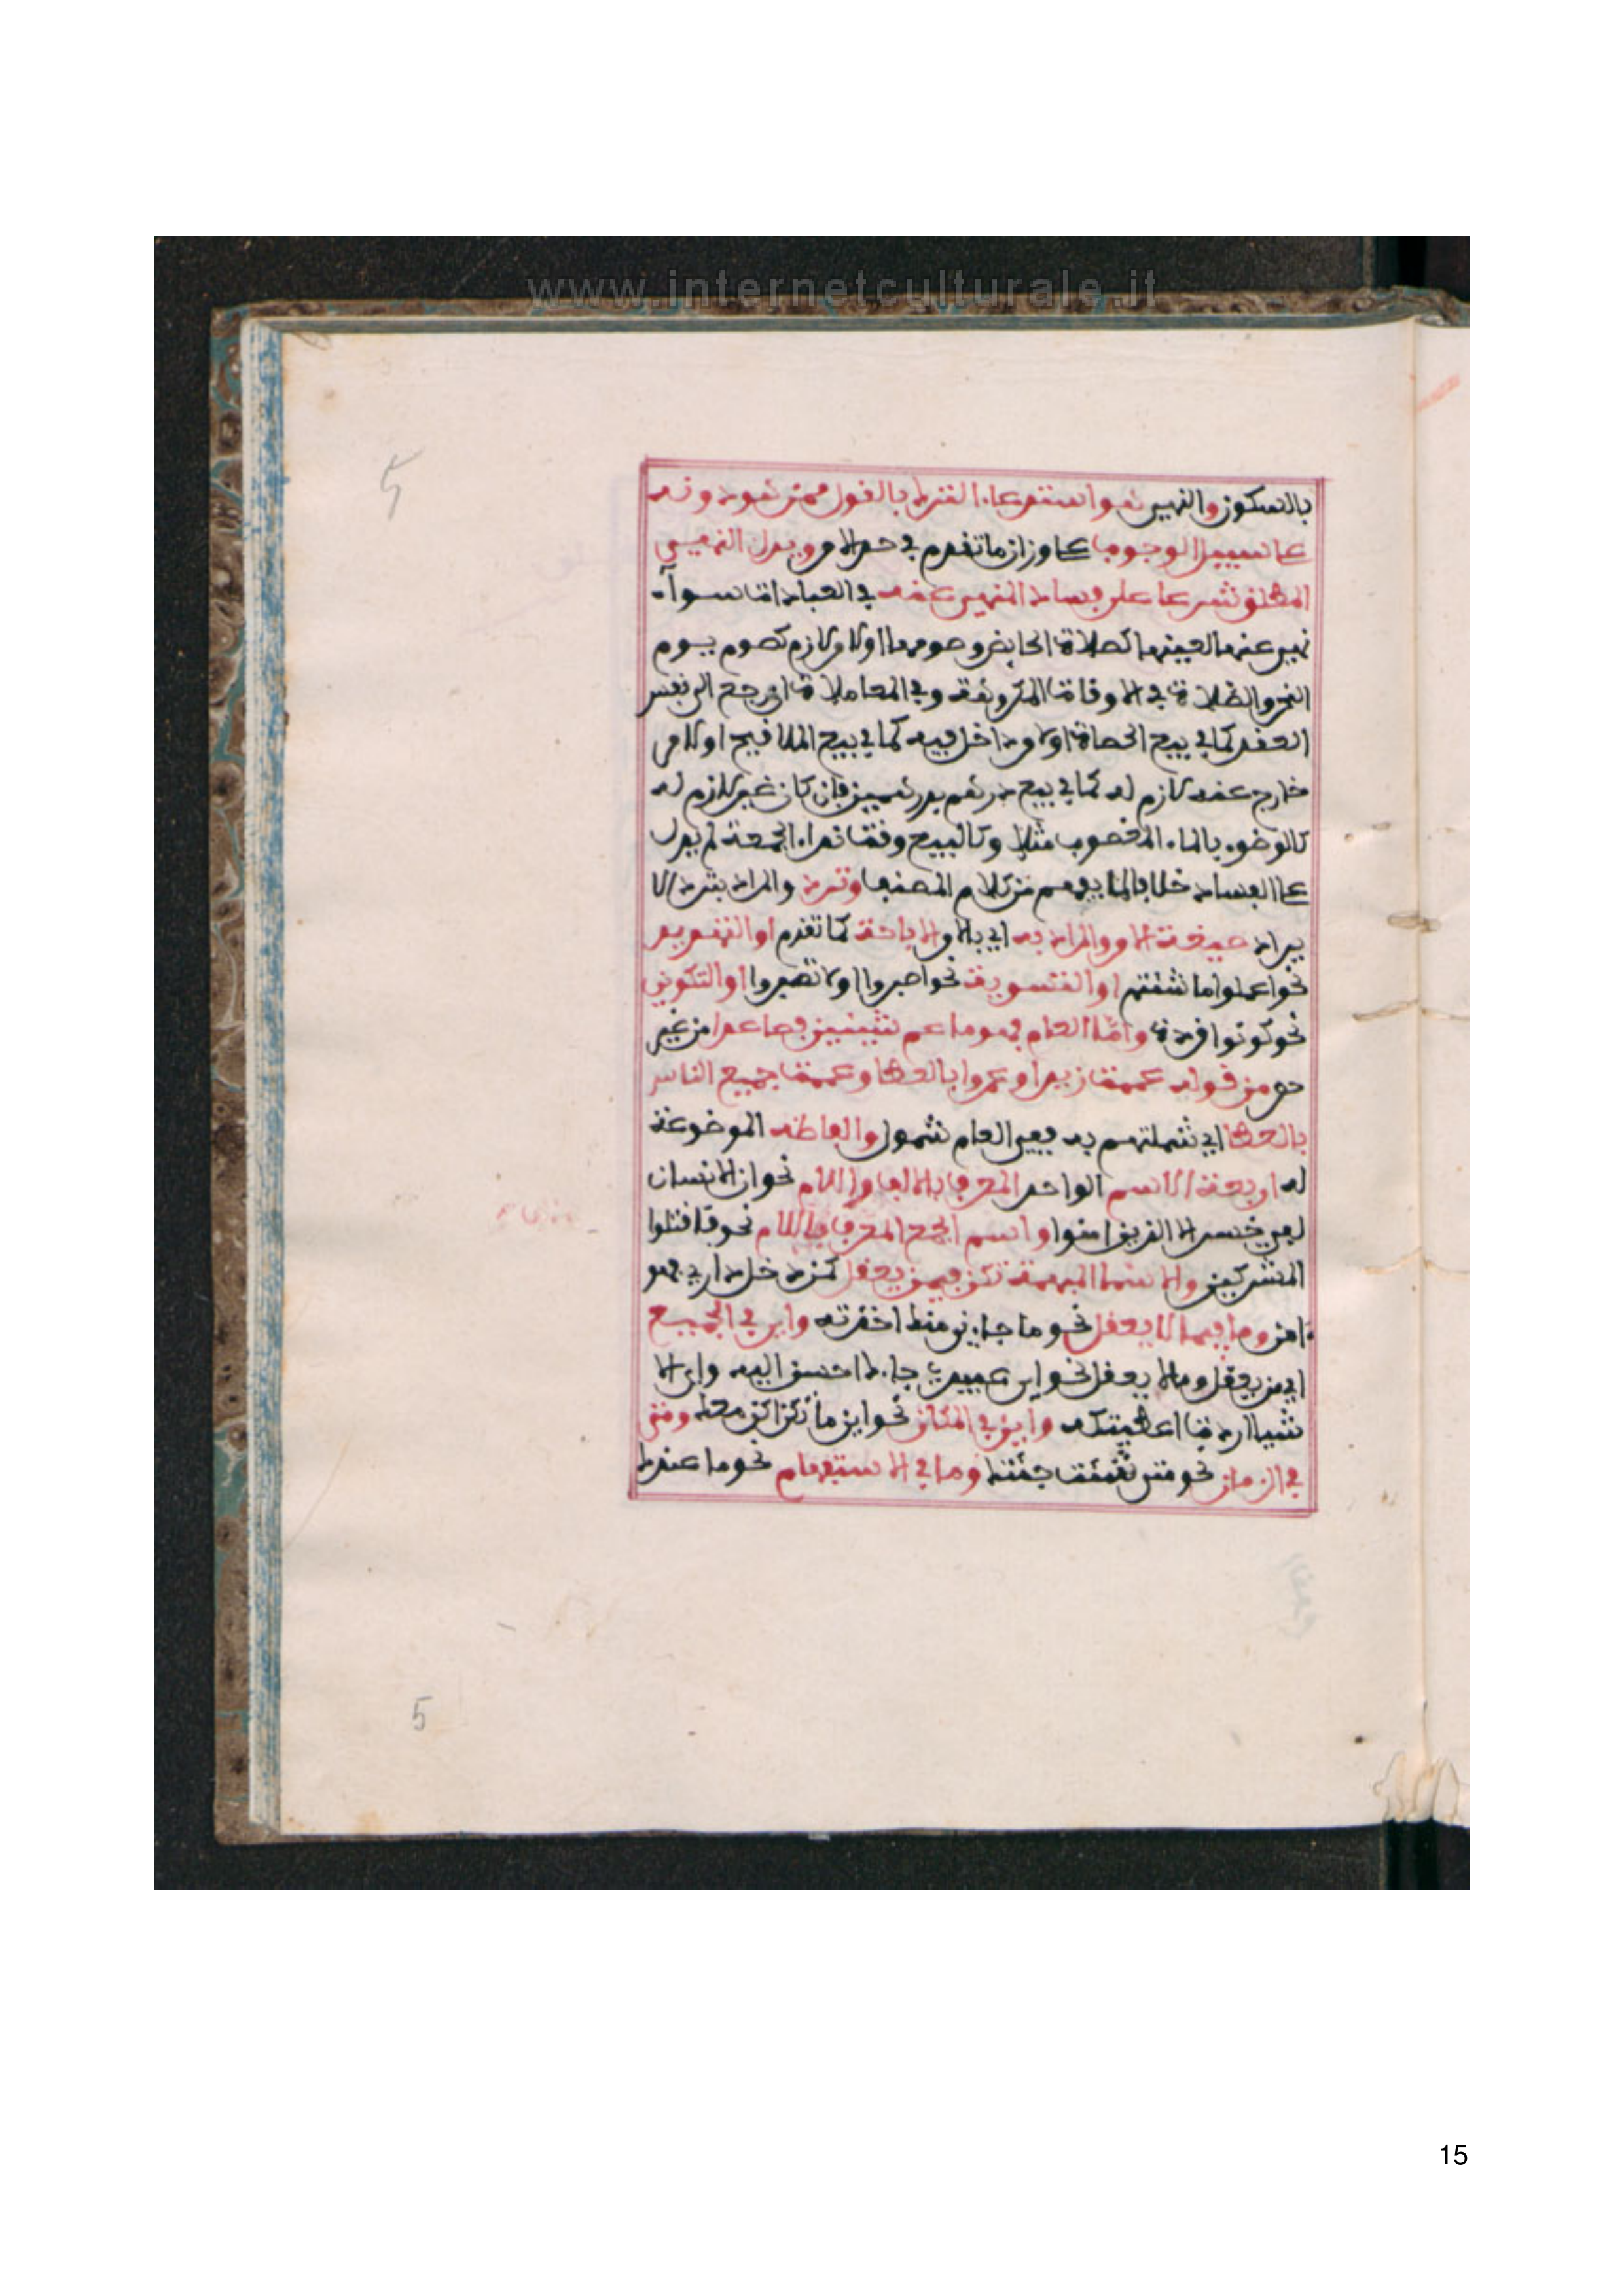 www.internetculturale.it
5
بالسكون والنهي هو استدعاء الترك بالقول ممن هو دونه
على سبيل الوجوب على وزان ما تقدم في حد الامر ويدل النهي
المطلق شرعا على فساد المنهي عنه في العبادات سوآء
نهي عنها لعينها كصلاة الحايض وصومها او لامر لازم كصوم يوم
النحر والصلاة في الاوقات المكروهة وفي المعاملات ان رجع الى نفس
العقد كما في بيع الحصاة او لامر داخل فيه كما في بيع الملاقيح او لامر
خارج عنه لازم له كما في بيع درهم بدرهمين فان كان غير لازم له
كالوضوء بالماء المغصوب مثلا وكالبيع وقت نداء الجمعة لم يدل
على الفساد خلافا لما يفهم من كلام المصنف وترد والمراد بترد الا
يراد صيغة الامر والمراد به اي بالامر الاباحة كما تقدم او التهديد
نحو اعملوا ما شئتم او التسوية نحو اصبروا او لا تصبروا او التكوين
نحو كونوا قردة واما العام فهو ما عم شيئين فصاعدا من غير
حصر من قوله عممت زيدا وعمروا بالعطا وعممت جميع الناس
بالعطا اي شملتهم به ففي العام شمول والفاظه الموضوعة
له اربعة الاسم الواحد المعرف بالالف واللام نحو ان الانسان
لفي خسر الا الذين امنوا واسم الجمع المعرف باللام نحو فاقتلوا
المشركين والاسما المبهمة كمن فيمن يعقل كمن دخل داري فهو
ءامن وما فيما لا يعقل نحو ما جاءني منك اخذته واي في الجميع
اي من يعقل وما لا يعقل نحو اي عبيدي جاءك احسن اليه واي الا
شيا اردت اعطيتكه واين في المكان نحو اين ما تكن اكن معك ومتى
في الزمان نحو متى شئت جئتك وما في الاستفهام نحو ما عندك
5
15